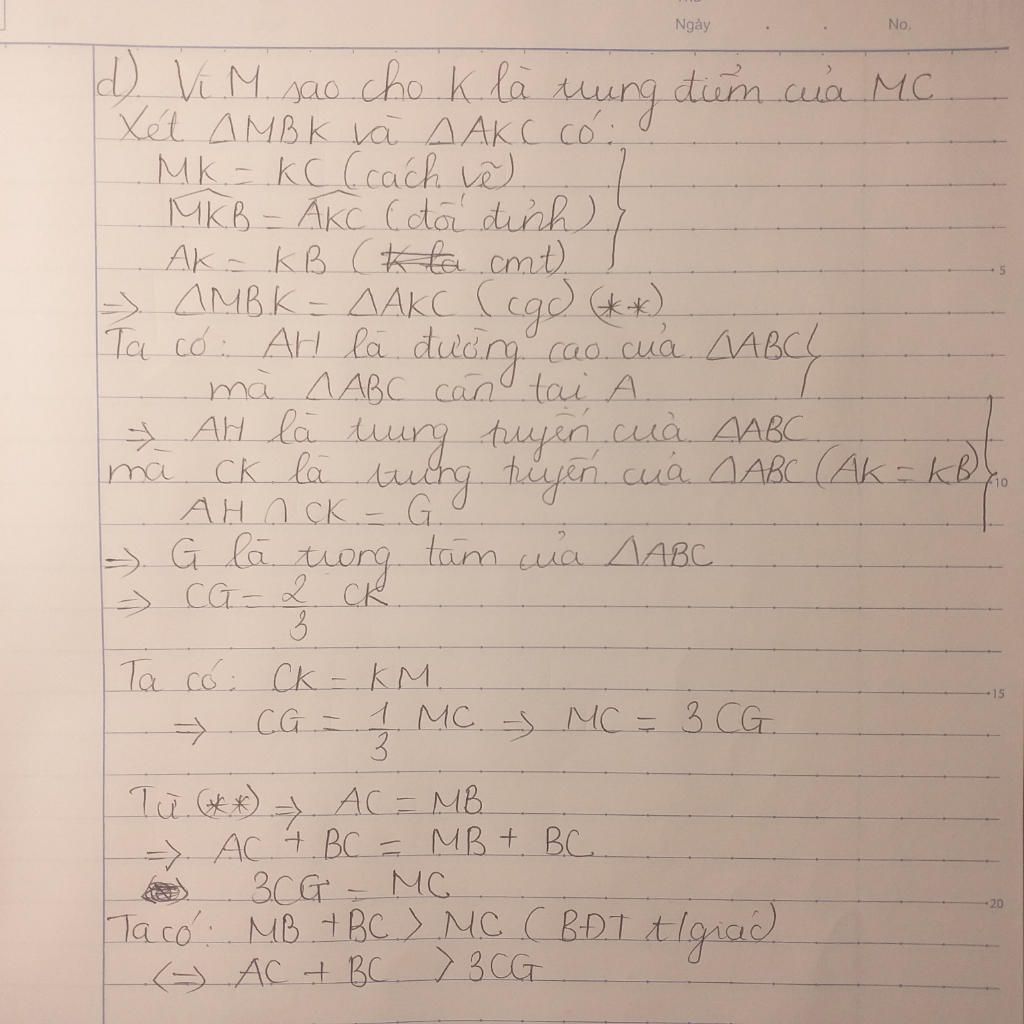 Ngày . . No.
d) Vì M sao cho K là trung điểm của MC
Xét ΔMBK và ΔAKC có:
MK = KC (cách vẽ)
MKB = AKC (đối đỉnh)
5
AK = KB (cmt)
=> ΔMBK = ΔAKC (cgc) (**)
Ta có: AH là đường cao của ΔABC
mà ΔABC cân tại A
=> AH là trung tuyến của ΔABC
mà CK là trung tuyến của ΔABC (AK = KB)
10
AH ∩ CK = G
=> G là trọng tâm của ΔABC
=> CG = 2/3 CK
Ta có: CK = KM
15
=> CG = 1/3 MC => MC = 3CG
Từ (**) => AC = MB
=> AC + BC = MB + BC
3CG = MC
20
Ta có: MB + BC > MC (BĐT t/giác)
<=> AC + BC > 3CG